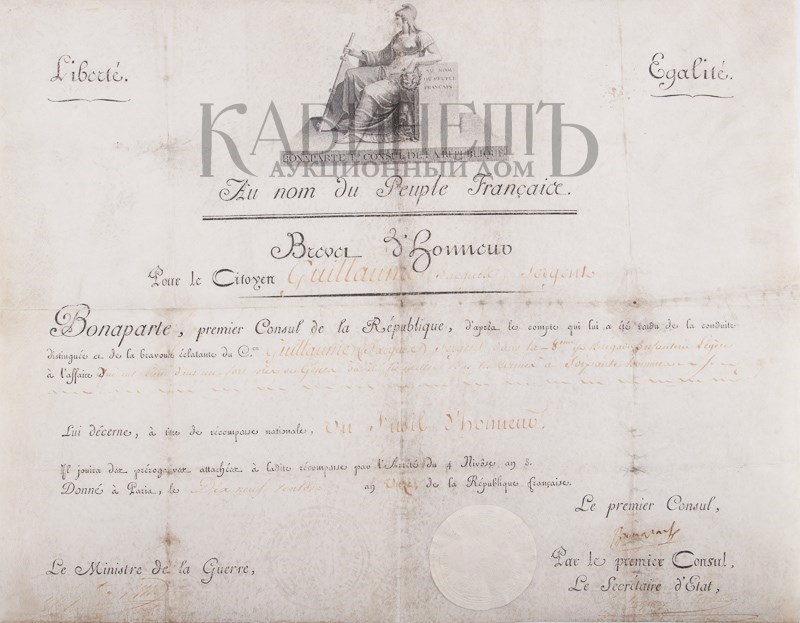 Liberté.
Egalité.
AU NOM
DU PEUPLE
FRANÇAIS
BONAPARTE 1er CONSUL DE LA REPUBLIQUE
КАБИНЕТЪ
АУКЦИОННЫЙ ДОМ
Au nom du Peuple Français.
Brevet d'Honneur
Pour le Citoyen Guillaume Sergent
Bonaparte, premier Consul de la République, d'après le compte qui lui a été rendu de la conduite
distinguée et de la bravoure éclatante du C.en Guillaume
à l'affaire
Lui décerne, à titre de récompense nationale, Un Fusil d'honneur.
Il jouira des prérogatives attachées à ladite récompense par l'Arrêté du 4 Nivôse an 8.
Donné à Paris, le an de la République française.
Le premier Consul,
Bonaparte
Par le premier Consul,
Le Ministre de la Guerre,
Le Secrétaire d'Etat,